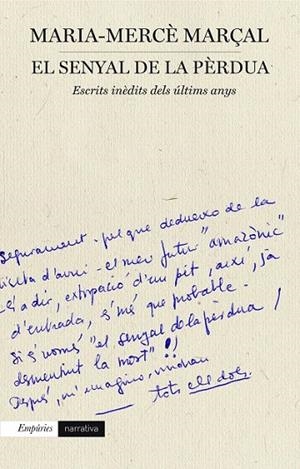 MARIA-MERCÈ MARÇAL
EL SENYAL DE LA PÈRDUA
Escrits inèdits dels últims anys
Segurament -pel que dedueixo de la
visita d'avui- el meu futur "amazònic"
-és a dir, extirpació d'un pit, així, ja
d'entrada, s'més que probable-
Si és només "el senyal de la pèrdua /
desmentint la mort"!!
Després, m'imagino, vindran
tots els dols.
Empúries narrativa